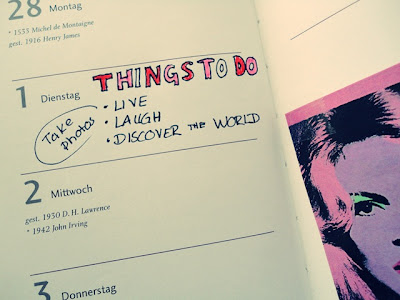 28 Montag
* 1533 Michel de Montaigne
gest. 1916 Henry James
THINGS TO DO
1 Dienstag
• LIVE
Take photos
• LAUGH
• DISCOVER THE WORLD
2 Mittwoch
gest. 1930 D. H. Lawrence
* 1942 John Irving
3 Donnerstag